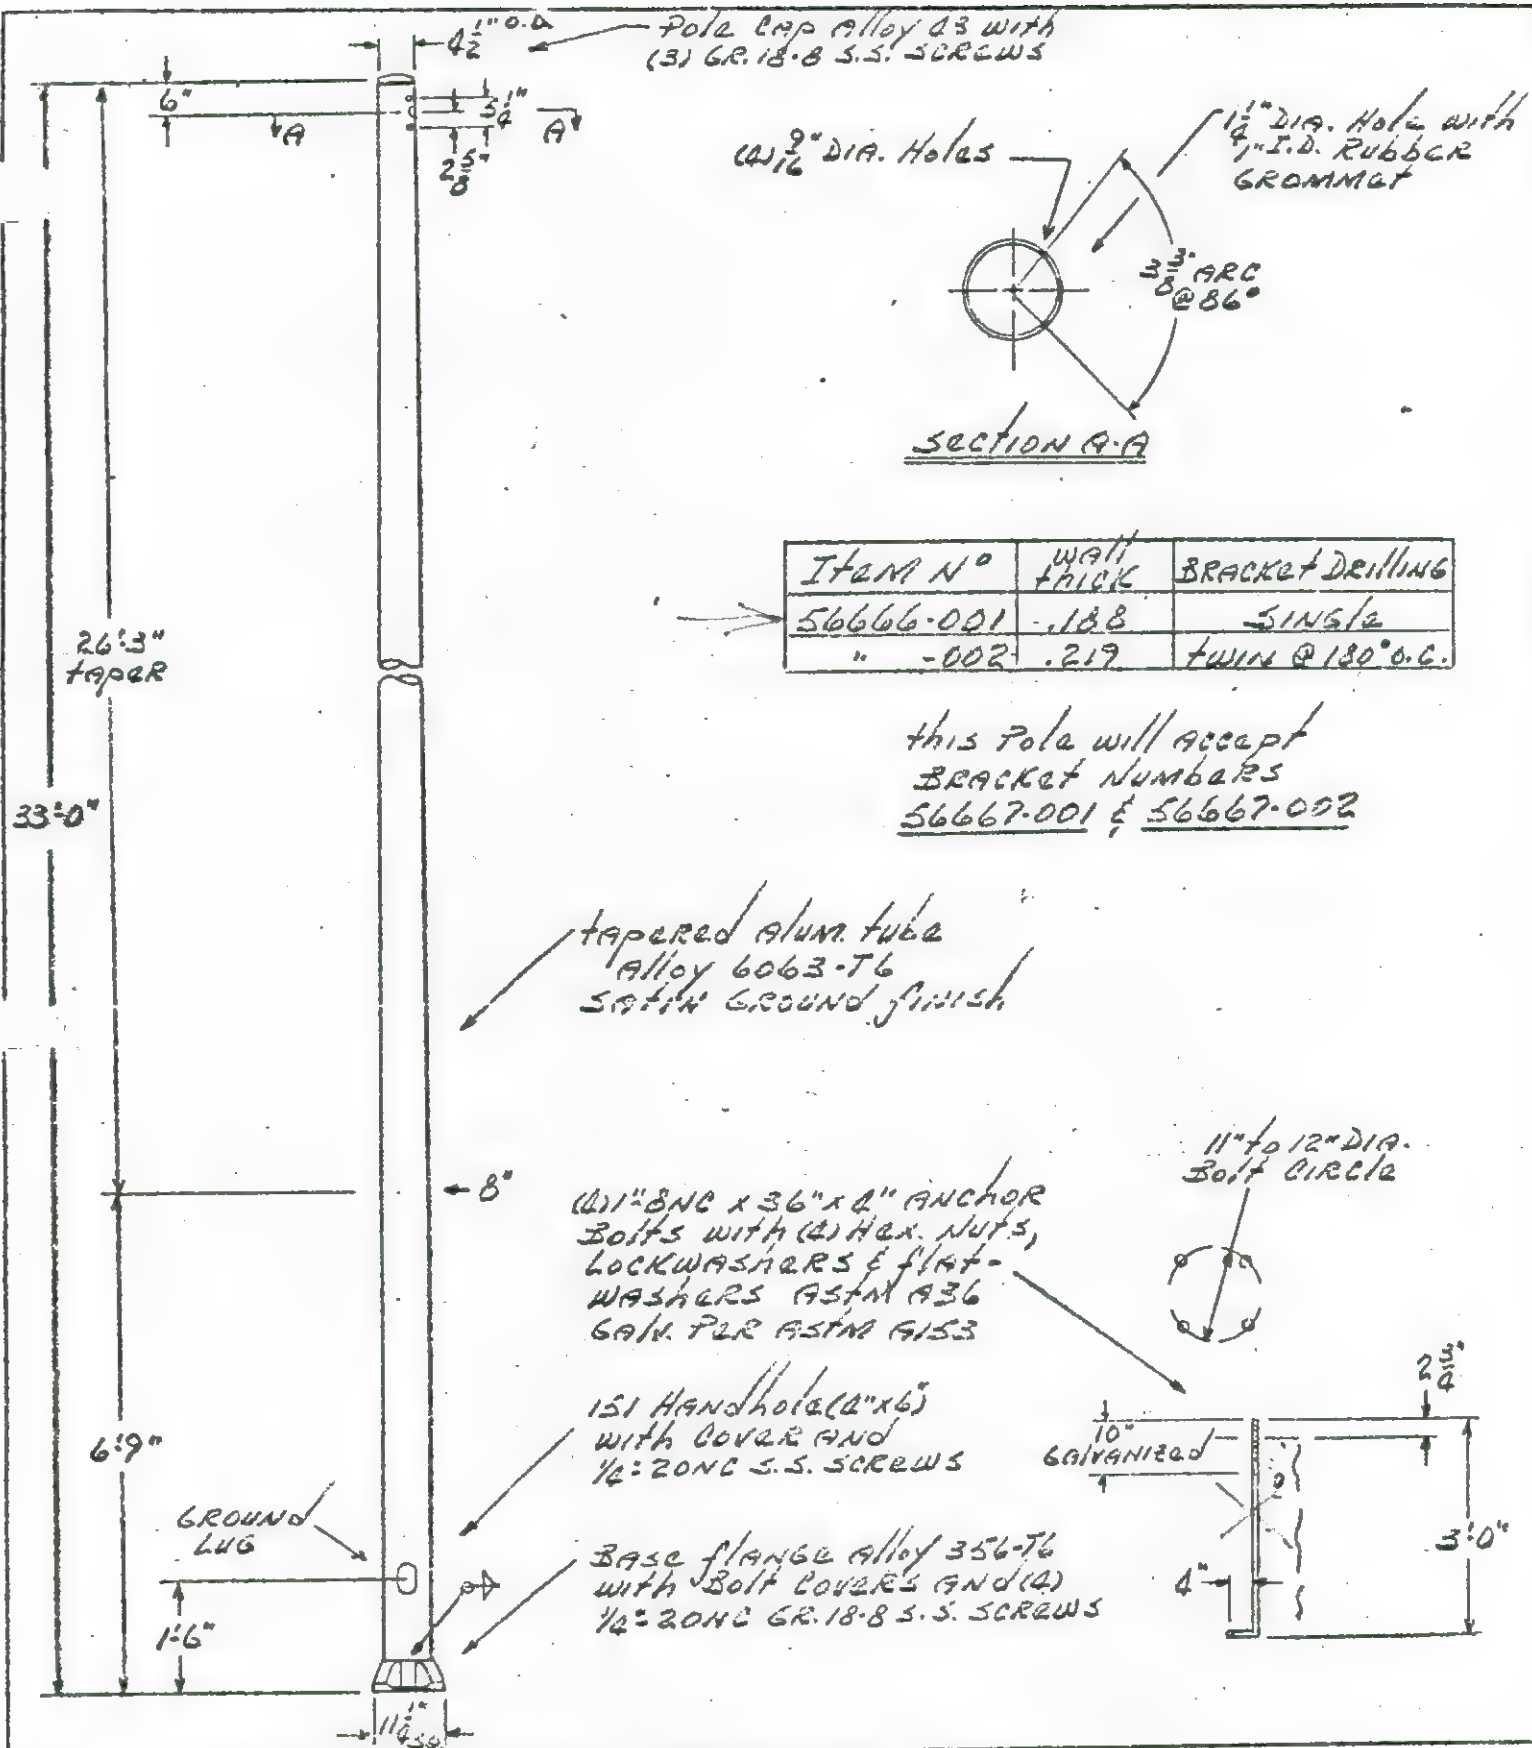 4 1/2" O.D.
Pole CAP Alloy 43 with
(3) GR. 18-8 S.S. SCREWS
6"
A
A
5 1/4"
2 5/8"
(4) 9/16" DIA. Holes
1 1/4" DIA. Hole with
1" I.D. RUBBER
GROMMET
3 3/8" ARC
@ 86°
SECTION A-A
Item No WALL THICK BRACKET DRILLING
56666-001 .188 SINGLE
" -002 .219 TWIN @ 180° O.C.
this Pole will Accept
BRACKET NUMBERS
56667-001 & 56667-002
26'-3"
TAPER
33'-0"
TAPERED ALUM. tube
Alloy 6063-T6
SATIN GROUND finish
8"
(4) 1"-8NC x 36" x 4" ANCHOR
Bolts with (4) HEX. NUTS,
LOCKWASHERS & flat-
WASHERS ASTM A36
GALV. PER ASTM A153
11" to 12" DIA.
Bolt CIRCLE
6'-9"
151 HANDhole (4"x6")
with COVER AND
1/4"-20NC S.S. SCREWS
10"
GALVANIZED
2 3/4"
3'-0"
4"
GROUND
LUG
BASE flANGE Alloy 356-T6
with Bolt COVERS AND (4)
1/4"-20NC GR. 18-8 S.S. SCREWS
1'-6"
11 1/4" SQ.